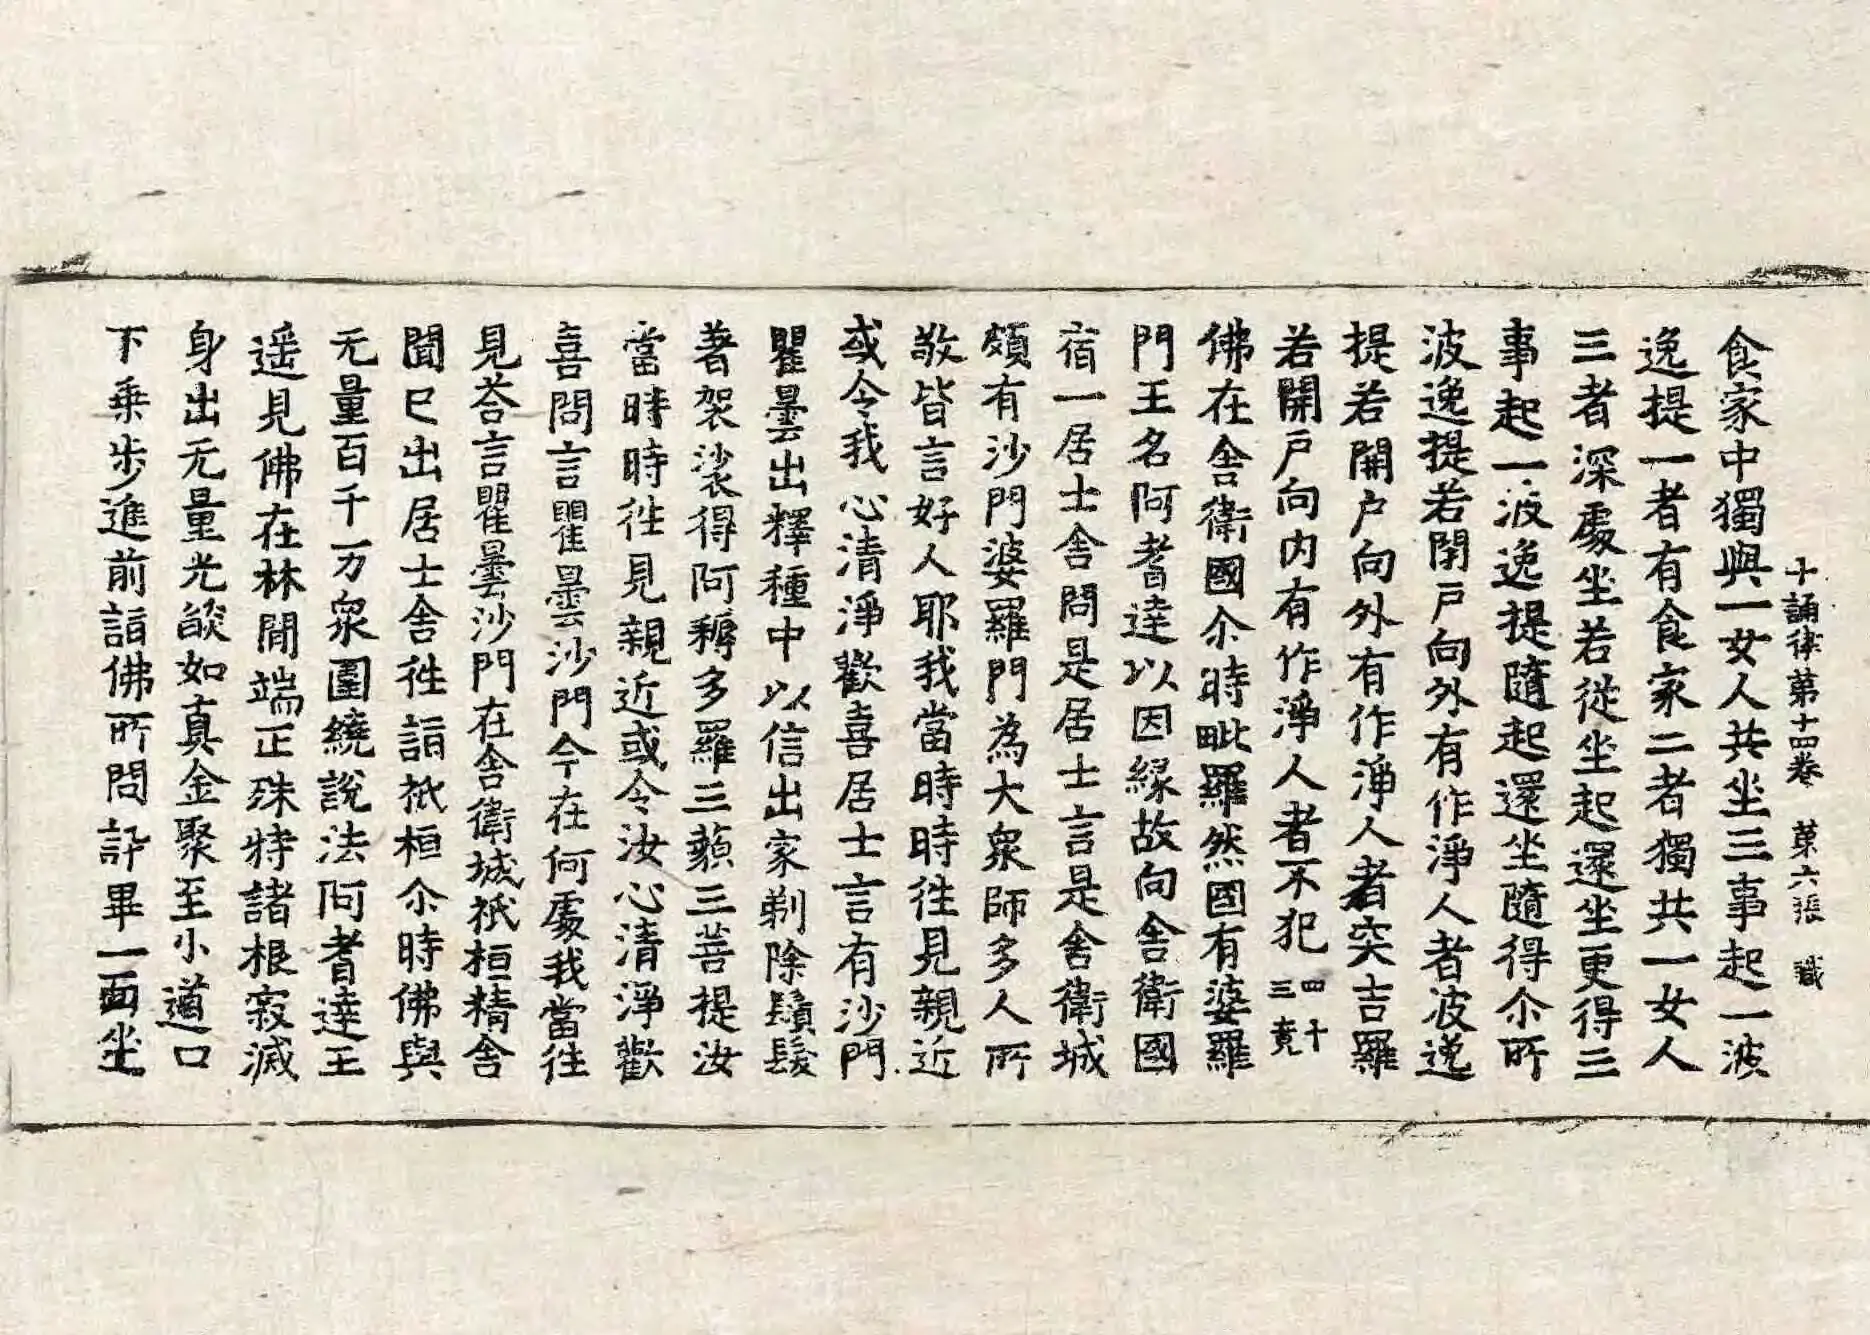 十誦律第十四卷　第六張　職
食家中獨與一女人共坐三事起一波
逸提一者有食家二者獨共一女人
三者深處坐若從坐起還坐更得三
事起一波逸提隨起還坐隨得尒所
波逸提若閉戶向外有作淨人者波逸
提若開戶向外有作淨人者突吉羅
若開戶向內有作淨人者不犯四十三竟
佛在舍衛國尒時毗羅然國有婆羅
門王名阿耆達以因緣故向舍衛國
宿一居士舍問是居士言是舍衛城
頗有沙門婆羅門為大衆師多人所
敬皆言好人耶我當時時往見親近
或令我心清淨歡喜居士言有沙門
瞿曇出釋種中以信出家剃除鬚髮
著袈裟得阿耨多羅三藐三菩提汝
當時時往見親近或令汝心清淨歡
喜問言瞿曇沙門今在何處我當往
見荅言瞿曇沙門在舍衛城祇桓精舍
聞已出居士舍往詣祇桓尒時佛與
无量百千万衆圍繞說法阿耆達王
遥見佛在林閒端正殊特諸根寂滅
身出无量光燄如真金聚至小道口
下乗步進前詣佛所問訊畢一面坐